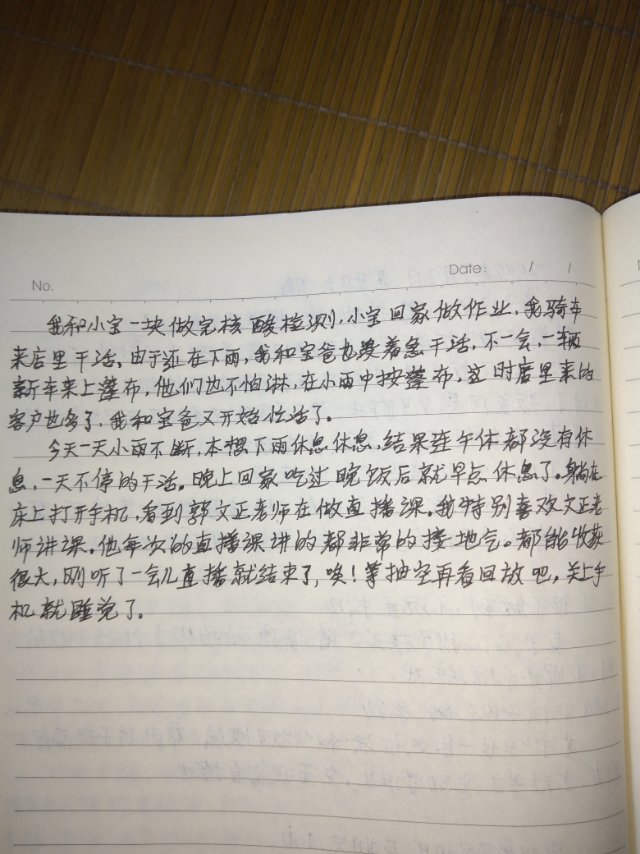 Date: / /
No.
我和小宝一块做完核酸检测,小宝回家做作业,我骑车
来店里干活。由于还在下雨,我和宝爸也没着急干活,不一会,一辆
新车来上篷布,他们也不怕淋,在小雨中按篷布,这时店里来的
客户也多了,我和宝爸又开始忙活了。
今天一天小雨不断,本想下雨休息休息,结果连午休都没有休
息,一天不停的干活。晚上回家吃过晚饭后就早点休息了。躺在
床上打开手机,看到郭文正老师在做直播课。我特别喜欢文正老
师讲课。他每次的直播课讲的都非常的接地气。都能收获
很大,刚听了一会儿直播就结束了,唉!等抽空再看回放吧。关上手
机就睡觉了。